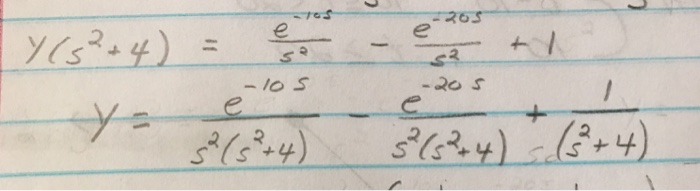 Y(s²+4) = e^(-10s)/s² - e^(-20s)/s² + 1
Y = e^(-10s)/(s²(s²+4)) - e^(-20s)/(s²(s²+4)) + 1/(s²+4)